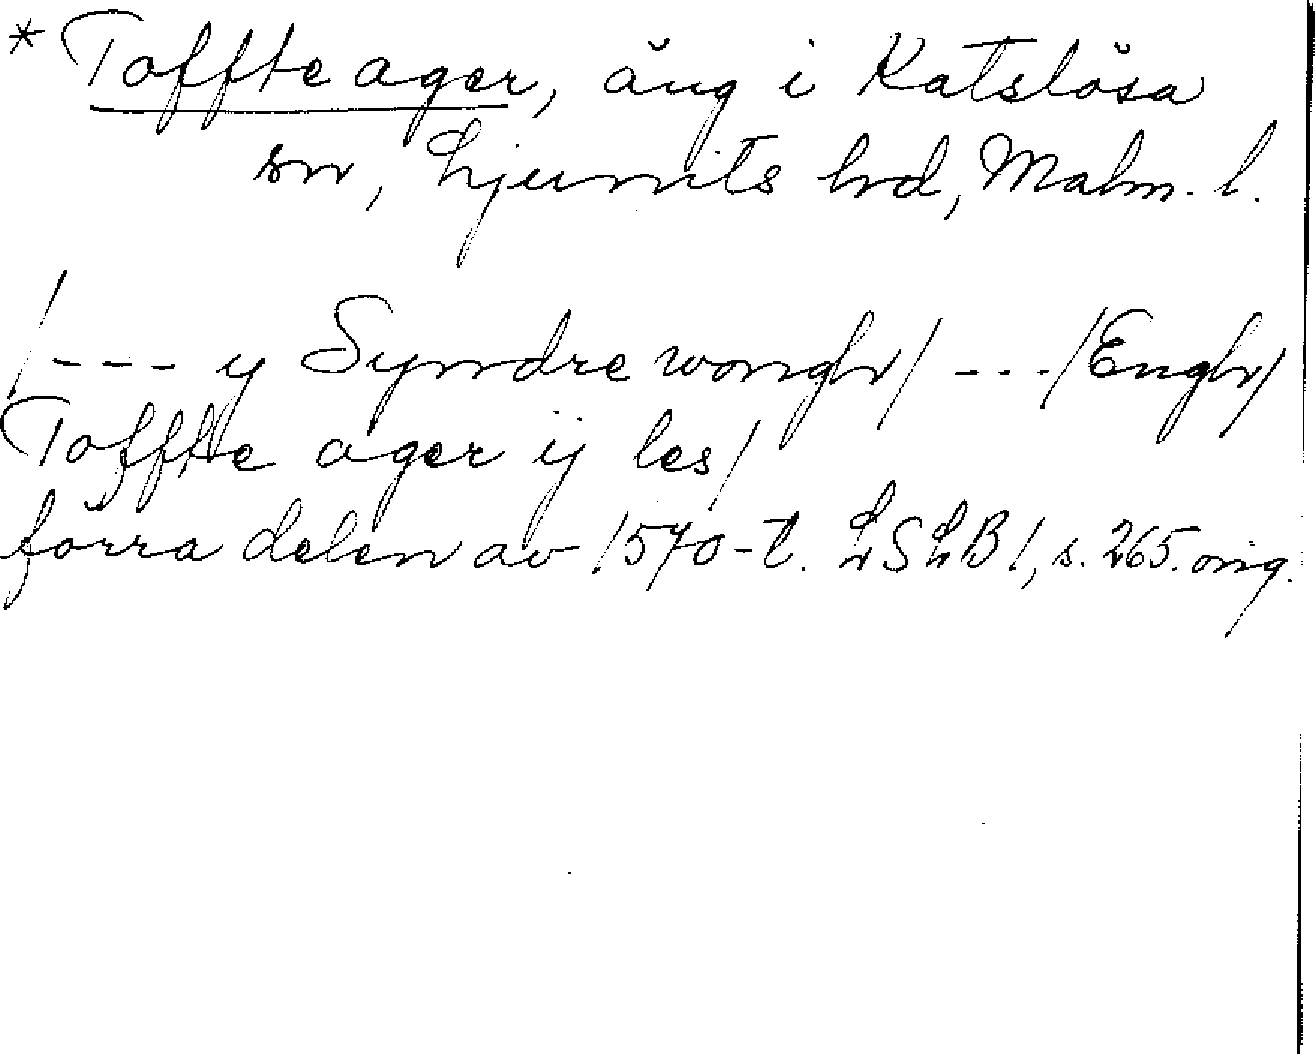 * Toffte ager, äng i Katslösa
sn, Ljunits hrd, Malm. l.
/--- y Syndre wongh/ ---/Engh/
Toffte ager ij les/
förra delen av 1570-t. LSLB 1, s. 265. orig.